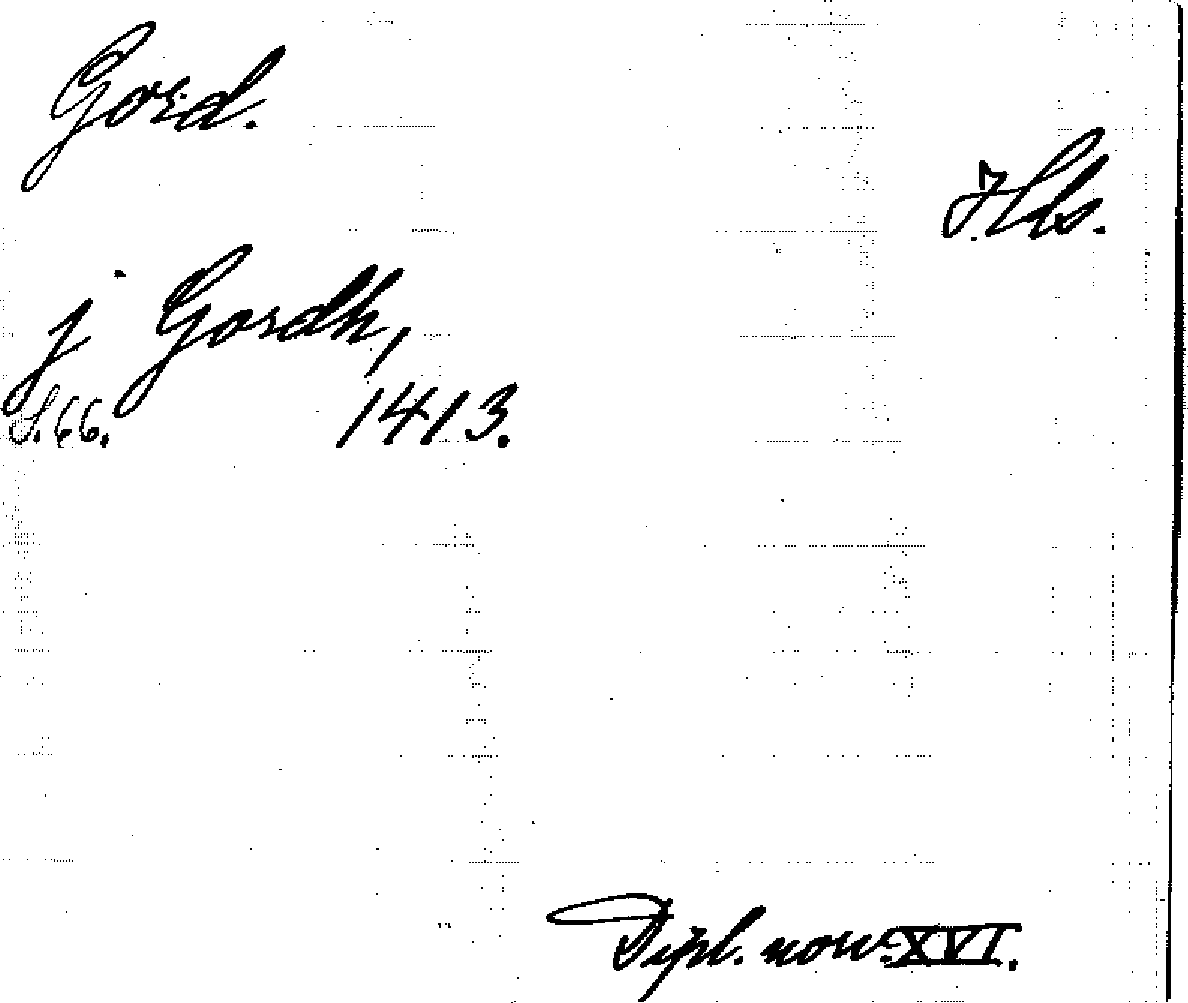 Gord.
Hls.
j Gordh,
S. 66. 1413.
Dipl. norv. XVI.